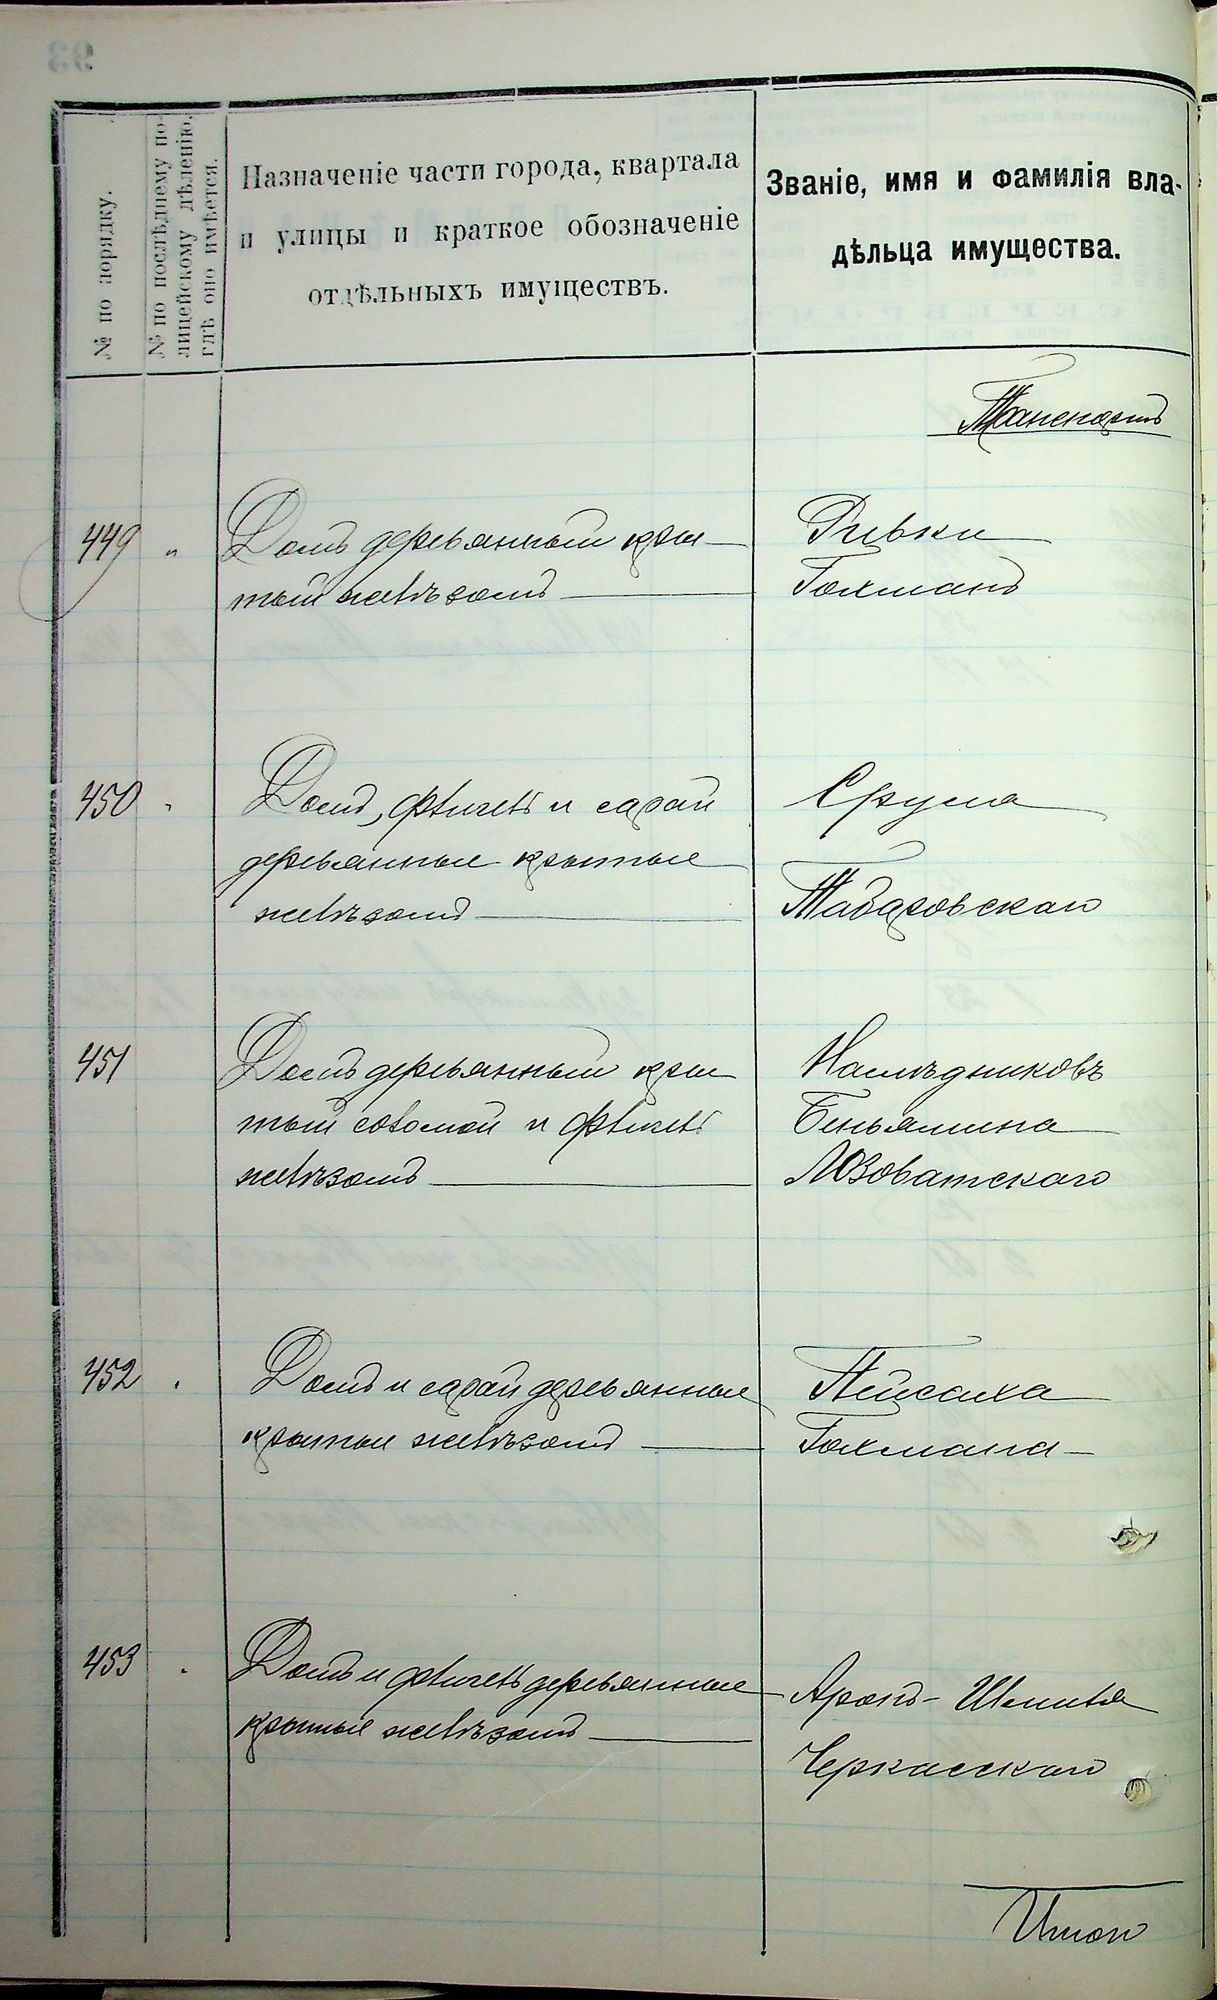 № по порядку.
№ по послѣднему по-
лицейскому дѣленію,
гдѣ оно имѣется.
Назначеніе части города, квартала
и улицы и краткое обозначеніе
отдѣльныхъ имуществъ.
Званіе, имя и фамилія вла-
дѣльца имущества.
Транспортъ
449 " Домъ деревянный кры-
тый желѣзомъ
Ривки
Гохманъ
450 " Домъ, флигель и сарай
деревянные крытые
желѣзомъ
Срула
Табаровскаго
451 Домъ деревянный кры-
тый соломой и флигель
желѣзомъ
Наслѣдниковъ
Беньямина
Лозоватскаго
452 " Домъ и сарай деревянные
крытые желѣзомъ
Пейсаха
Гохмана
453 " Домъ и флигель деревянные
крытые желѣзомъ
Аронъ-Шмиля
Черкасскаго
Итого